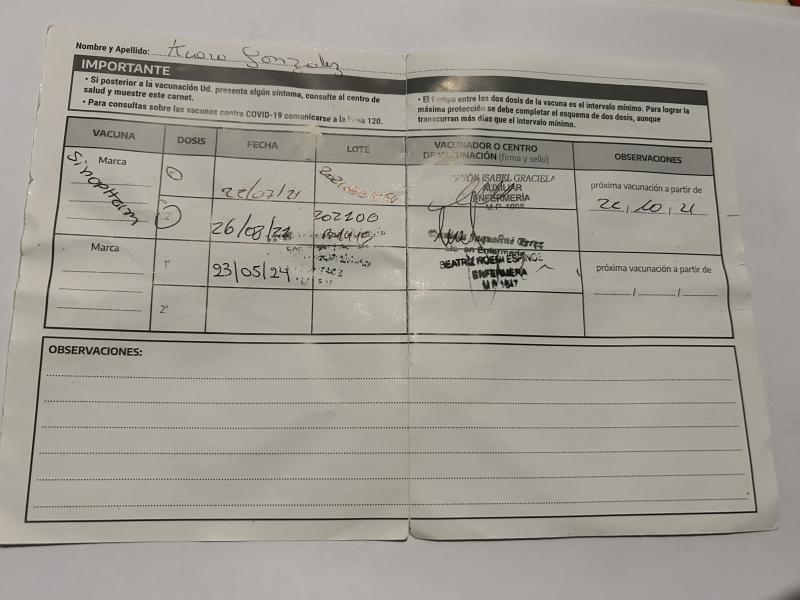 Nombre y Apellido: Gonzalez
IMPORTANTE
• Si posterior a la vacunación Ud. presenta algún síntoma, consulte al centro de
salud y muestre este carnet.
• Para consultas sobre las vacunas contra COVID-19 comunicarse a la línea 120.
• El tiempo entre las dos dosis de la vacuna es el intervalo mínimo. Para lograr la
máxima protección se debe completar el esquema de dos dosis, aunque
transcurran más días que el intervalo mínimo.
VACUNA DOSIS FECHA LOTE VACUNADOR O CENTRO
DE VACUNACIÓN (firma y sello) OBSERVACIONES
Marca
Sinopharm
22/07/21
ISABEL GRACIELA
AUXILIAR
ENFERMERÍA
próxima vacunación a partir de
22, 10, 21
2º
26/08/21
202100
Jaqueline Perez
en Enfermería
Marca
1º
93/05/24
BEATRIZ NOEMI ESPINOS
ENFERMERA
M P 1847
próxima vacunación a partir de
/ /
2º
OBSERVACIONES: